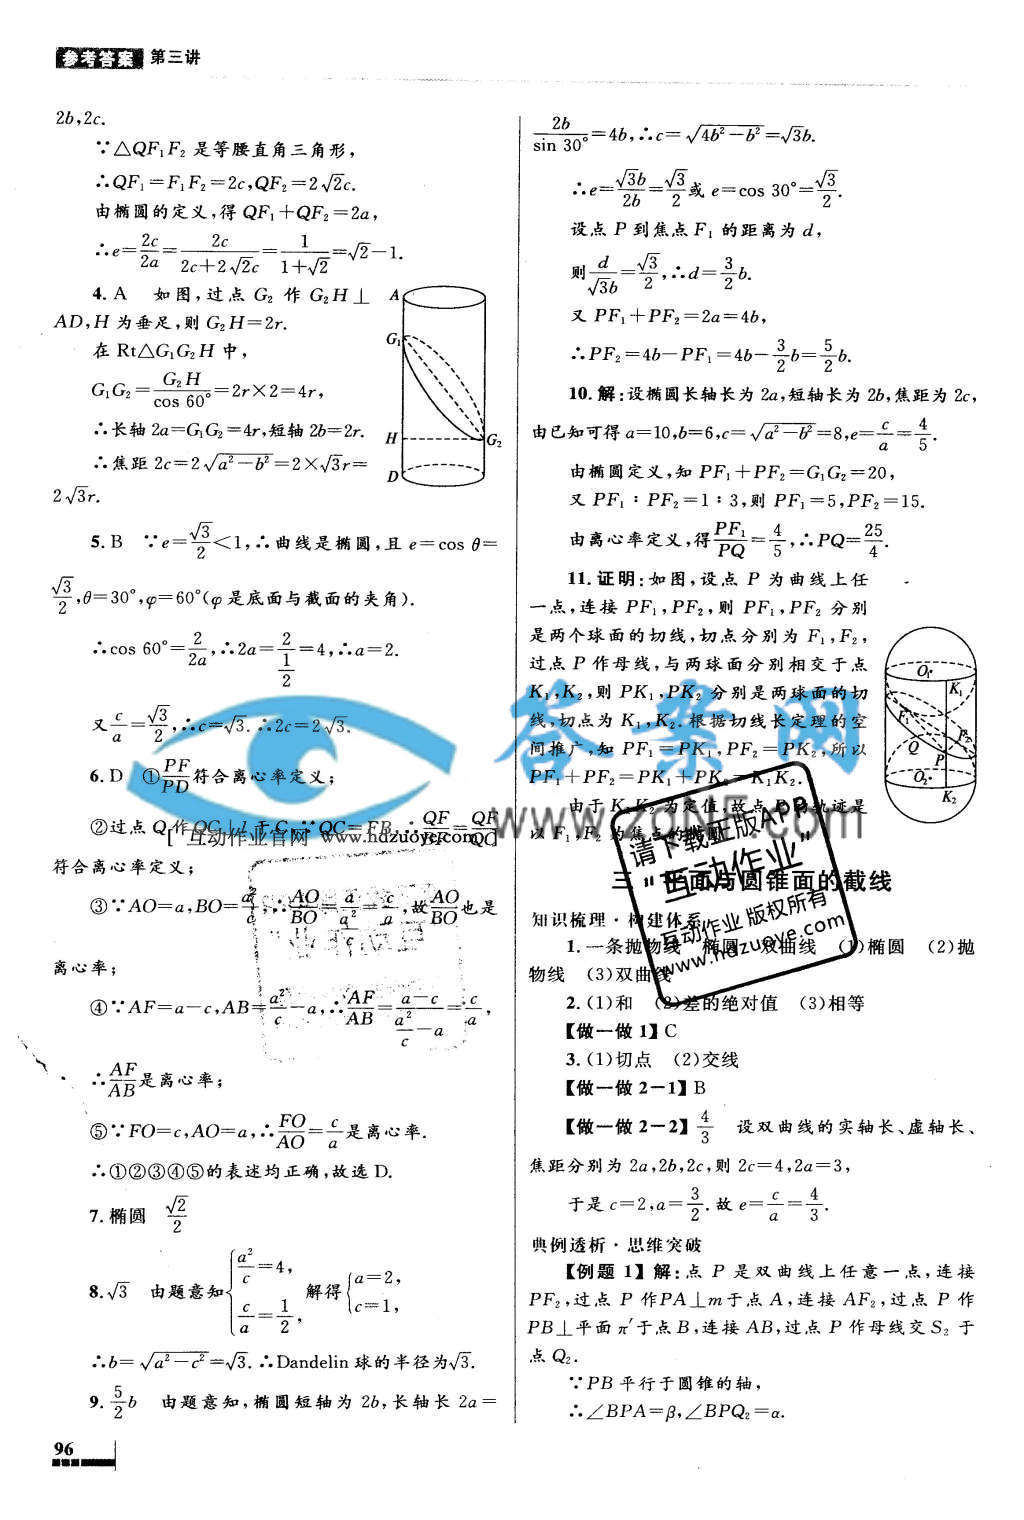 参考答案 第三讲
2b,2c.
∵△QF₁F₂ 是等腰直角三角形,
∴QF₁=F₁F₂=2c,QF₂=2√2c.
由椭圆的定义,得 QF₁+QF₂=2a,
∴e=2c/2a=2c/(2c+2√2c)=1/(1+√2)=√2-1.
4. A 如图,过点 G₂ 作 G₂H⊥
AD,H 为垂足,则 G₂H=2r.
在 Rt△G₁G₂H 中,
G₁G₂=G₂H/cos 60°=2r×2=4r,
∴长轴 2a=G₁G₂=4r,短轴 2b=2r.
∴焦距 2c=2√(a²-b²)=2×√3r=
2√3r.
A
G₁
H
G₂
D
5. B ∵e=√3/2<1,∴曲线是椭圆,且 e=cos θ=
√3/2,θ=30°,φ=60°(φ 是底面与截面的夹角).
∴cos 60°=2/2a,∴2a=2/(1/2)=4,∴a=2.
又 c/a=√3/2,∴c=√3.∴2c=2√3.
6. D ①PF/PD符合离心率定义;
②过点 Q 作 QC⊥l 于 C,∵QC=FB,∴QF/BF=QF/QC
符合离心率定义;
③∵AO=a,BO=a²/c,∴AO/BO=a/(a²/c)=c/a,故AO/BO也是
离心率;
④∵AF=a-c,AB=a²/c-a,∴AF/AB=(a-c)/(a²/c-a)=c/a,
∴AF/AB是离心率;
⑤∵FO=c,AO=a,∴FO/AO=c/a是离心率.
∴①②③④⑤的表述均正确,故选 D.
7. 椭圆 √2/2
8. √3 由题意知{a²/c=4, c/a=1/2, 解得{a=2, c=1,
∴b=√(a²-c²)=√3.∴Dandelin 球的半径为√3.
9. 5/2 b 由题意知,椭圆短轴为 2b,长轴长 2a=
96
2b/sin 30°=4b,∴c=√(4b²-b²)=√3b.
∴e=√3b/2b=√3/2或 e=cos 30°=√3/2.
设点 P 到焦点 F₁ 的距离为 d,
则d/√3b=√3/2,∴d=3/2 b.
又 PF₁+PF₂=2a=4b,
∴PF₂=4b-PF₁=4b-3/2 b=5/2 b.
10. 解:设椭圆长轴长为 2a,短轴长为 2b,焦距为 2c,
由已知可得 a=10,b=6,c=√(a²-b²)=8,e=c/a=4/5.
由椭圆定义,知 PF₁+PF₂=G₁G₂=20,
又 PF₁∶PF₂=1∶3,则 PF₁=5,PF₂=15.
由离心率定义,得PF₁/PQ=4/5,∴PQ=25/4.
11. 证明:如图,设点 P 为曲线上任
一点,连接 PF₁,PF₂,则 PF₁,PF₂ 分别
是两个球面的切线,切点分别为 F₁,F₂,
过点 P 作母线,与两球面分别相交于点
K₁,K₂,则 PK₁,PK₂ 分别是两球面的切
线,切点为 K₁,K₂.根据切线长定理的空
间推广,知 PF₁=PK₁,PF₂=PK₂,所以
PF₁+PF₂=PK₁+PK₂=K₁K₂.
由于 K₁K₂ 为定值,故点 P 的轨迹是
以 F₁,F₂ 为焦点的椭圆.
O₁
K₁
F₁
F₂
Q
P
O₂
K₂
三 平面与圆锥面的截线
知识梳理·构建体系
1. 一条抛物线 椭圆 双曲线 (1)椭圆 (2)抛
物线 (3)双曲线
2. (1)和 (2)差的绝对值 (3)相等
【做一做 1】C
3. (1)切点 (2)交线
【做一做 2-1】B
【做一做 2-2】4/3 设双曲线的实轴长、虚轴长、
焦距分别为 2a,2b,2c,则 2c=4,2a=3,
于是 c=2,a=3/2.故 e=c/a=4/3.
典例透析·思维突破
【例题 1】解:点 P 是双曲线上任意一点,连接
PF₂,过点 P 作PA⊥m于点 A,连接 AF₂,过点 P 作
PB⊥平面 π′于点 B,连接 AB,过点 P 作母线交 S₂ 于
点 Q₂.
∵PB 平行于圆锥的轴,
∴∠BPA=β,∠BPQ₂=α.
答案网
www.zqNF.com
[ 互动作业官网 www.hdzuoye.com ]
请下载正版APP
“互动作业”
互动作业 版权所有
www.hdzuoye.com